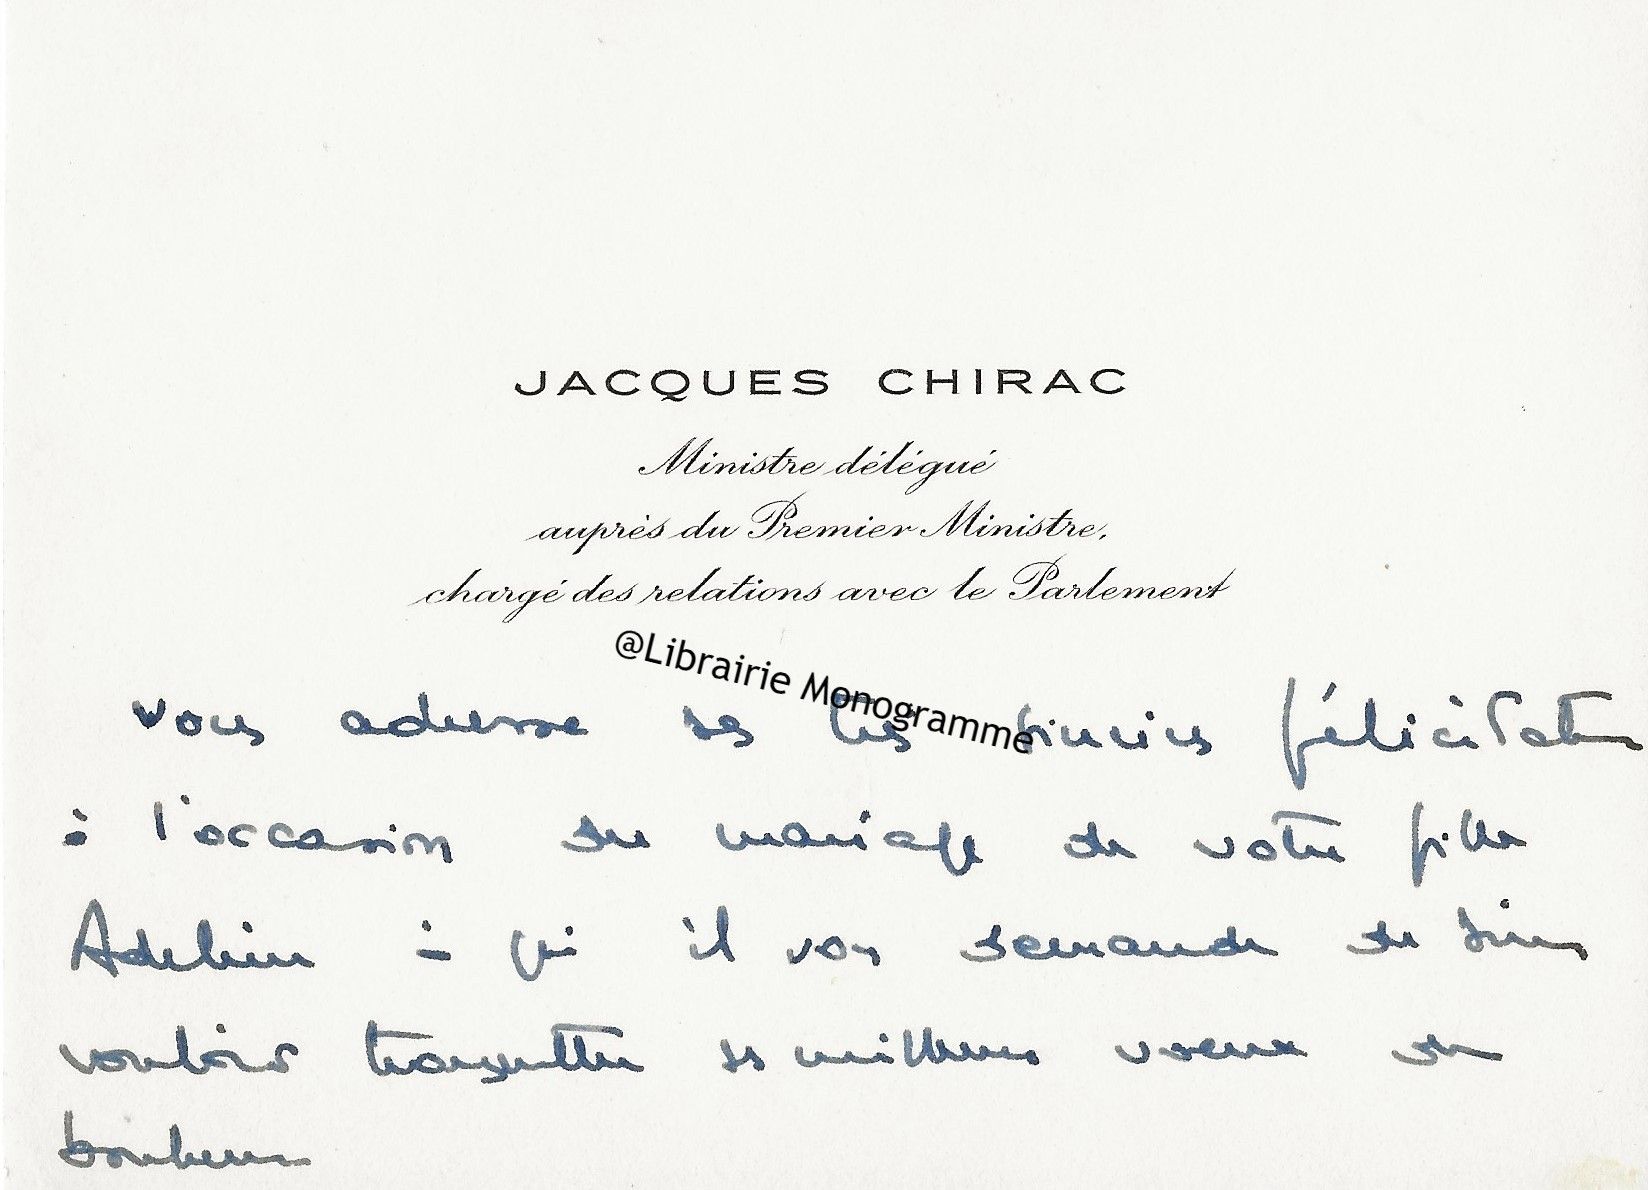 JACQUES CHIRAC
Ministre délégué
auprès du Premier Ministre,
chargé des relations avec le Parlement
@Librairie Monogramme
vous adresse ses très sincères félicitations
à l'occasion du mariage de votre fille
Adeline à qui il vous demande de bien
vouloir transmettre ses meilleurs voeux de
bonheur